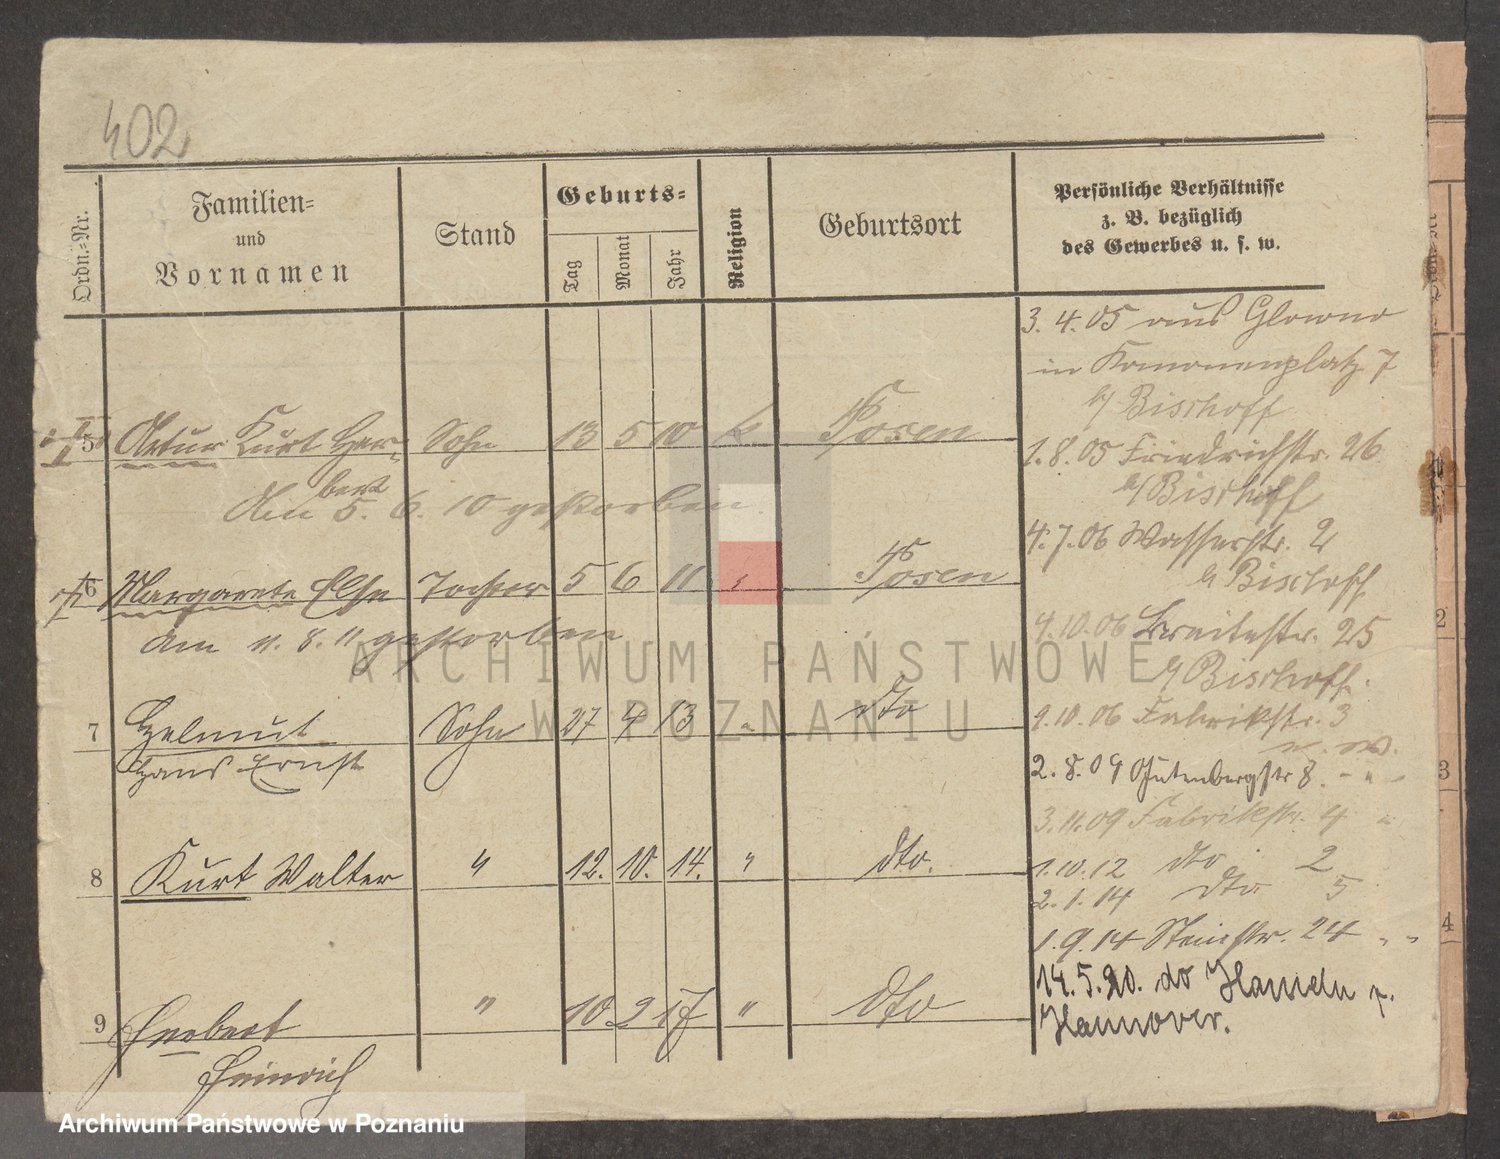 402
Ordn.-Nr.
Familien-
und
Vornamen
Stand
Geburts-
Tag
Monat
Jahr
Religion
Geburtsort
Persönliche Verhältnisse
z. B. bezüglich
des Gewerbes u. s. w.
5 Artur Kurt Her- Sohn 13 5 10 k. Posen
bert
Am 5. 6. 10 gestorben.
6 Margarete Else Tochter 5 6 11 " Posen
Am 11. 8. 11 gestorben
7 Helmut Sohn 27 4 13 " dto
Hans Ernst
8 Kurt Walter " 12. 10. 14. " dto.
9 Herbert " 10 2 17 " dto
Heinrich
3. 4. 05 aus Glowno
in Kanonenplatz 7
b/ Bischoff
1. 8. 05 Friedrichstr. 26
b/ Bischoff
4. 7. 06 Wasserstr. 2
b/ Bischoff
4. 10. 06 Breitestr. 25
b/ Bischoff.
9. 10. 06 Fabrikstr. 3
u. W.
2. 8. 09 Gutenbergstr 8. - " -
3. 11. 09 Fabrikstr. 4 "
1. 10. 12 dto 2
2. 1. 14 dto 5
1. 9. 14 Steinstr. 24 " "
14. 5. 20. do Hameln
Hannover.
2
3
4
ARCHIWUM PAŃSTWOWE
W POZNANIU
Archiwum Państwowe w Poznaniu